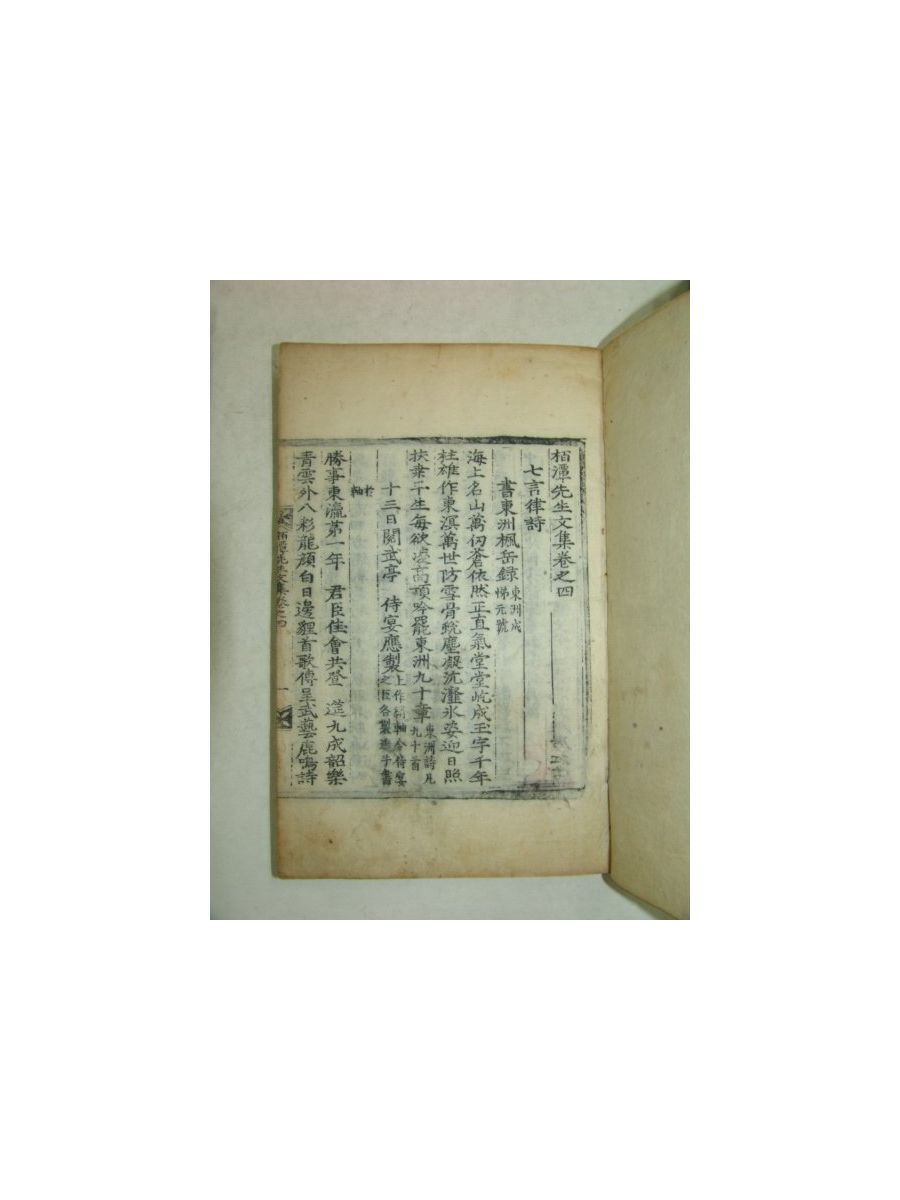 栢潭先生文集卷之四
七言律詩
書東洲楓岳錄 東洲成悌元號
海上名山萬仞蒼依然正直氣堂堂屹成玉字千年
柱雄作東溟萬世防雪骨蛻塵凝沆瀣氷姿迎日照
扶桒平生每欲凌高頂吟罷東洲九十章 東洲詩凡九十首
十三日閱武亭 侍宴應製 上作 軸令侍宴之臣各製進手書
於軸
勝事東瀛第一年 君臣佳會共登 筵九成韶樂
青雲外八彩龍顔白日邊貍首歌傳呈武藝鹿鳴詩
栢潭先生文集卷之四 一